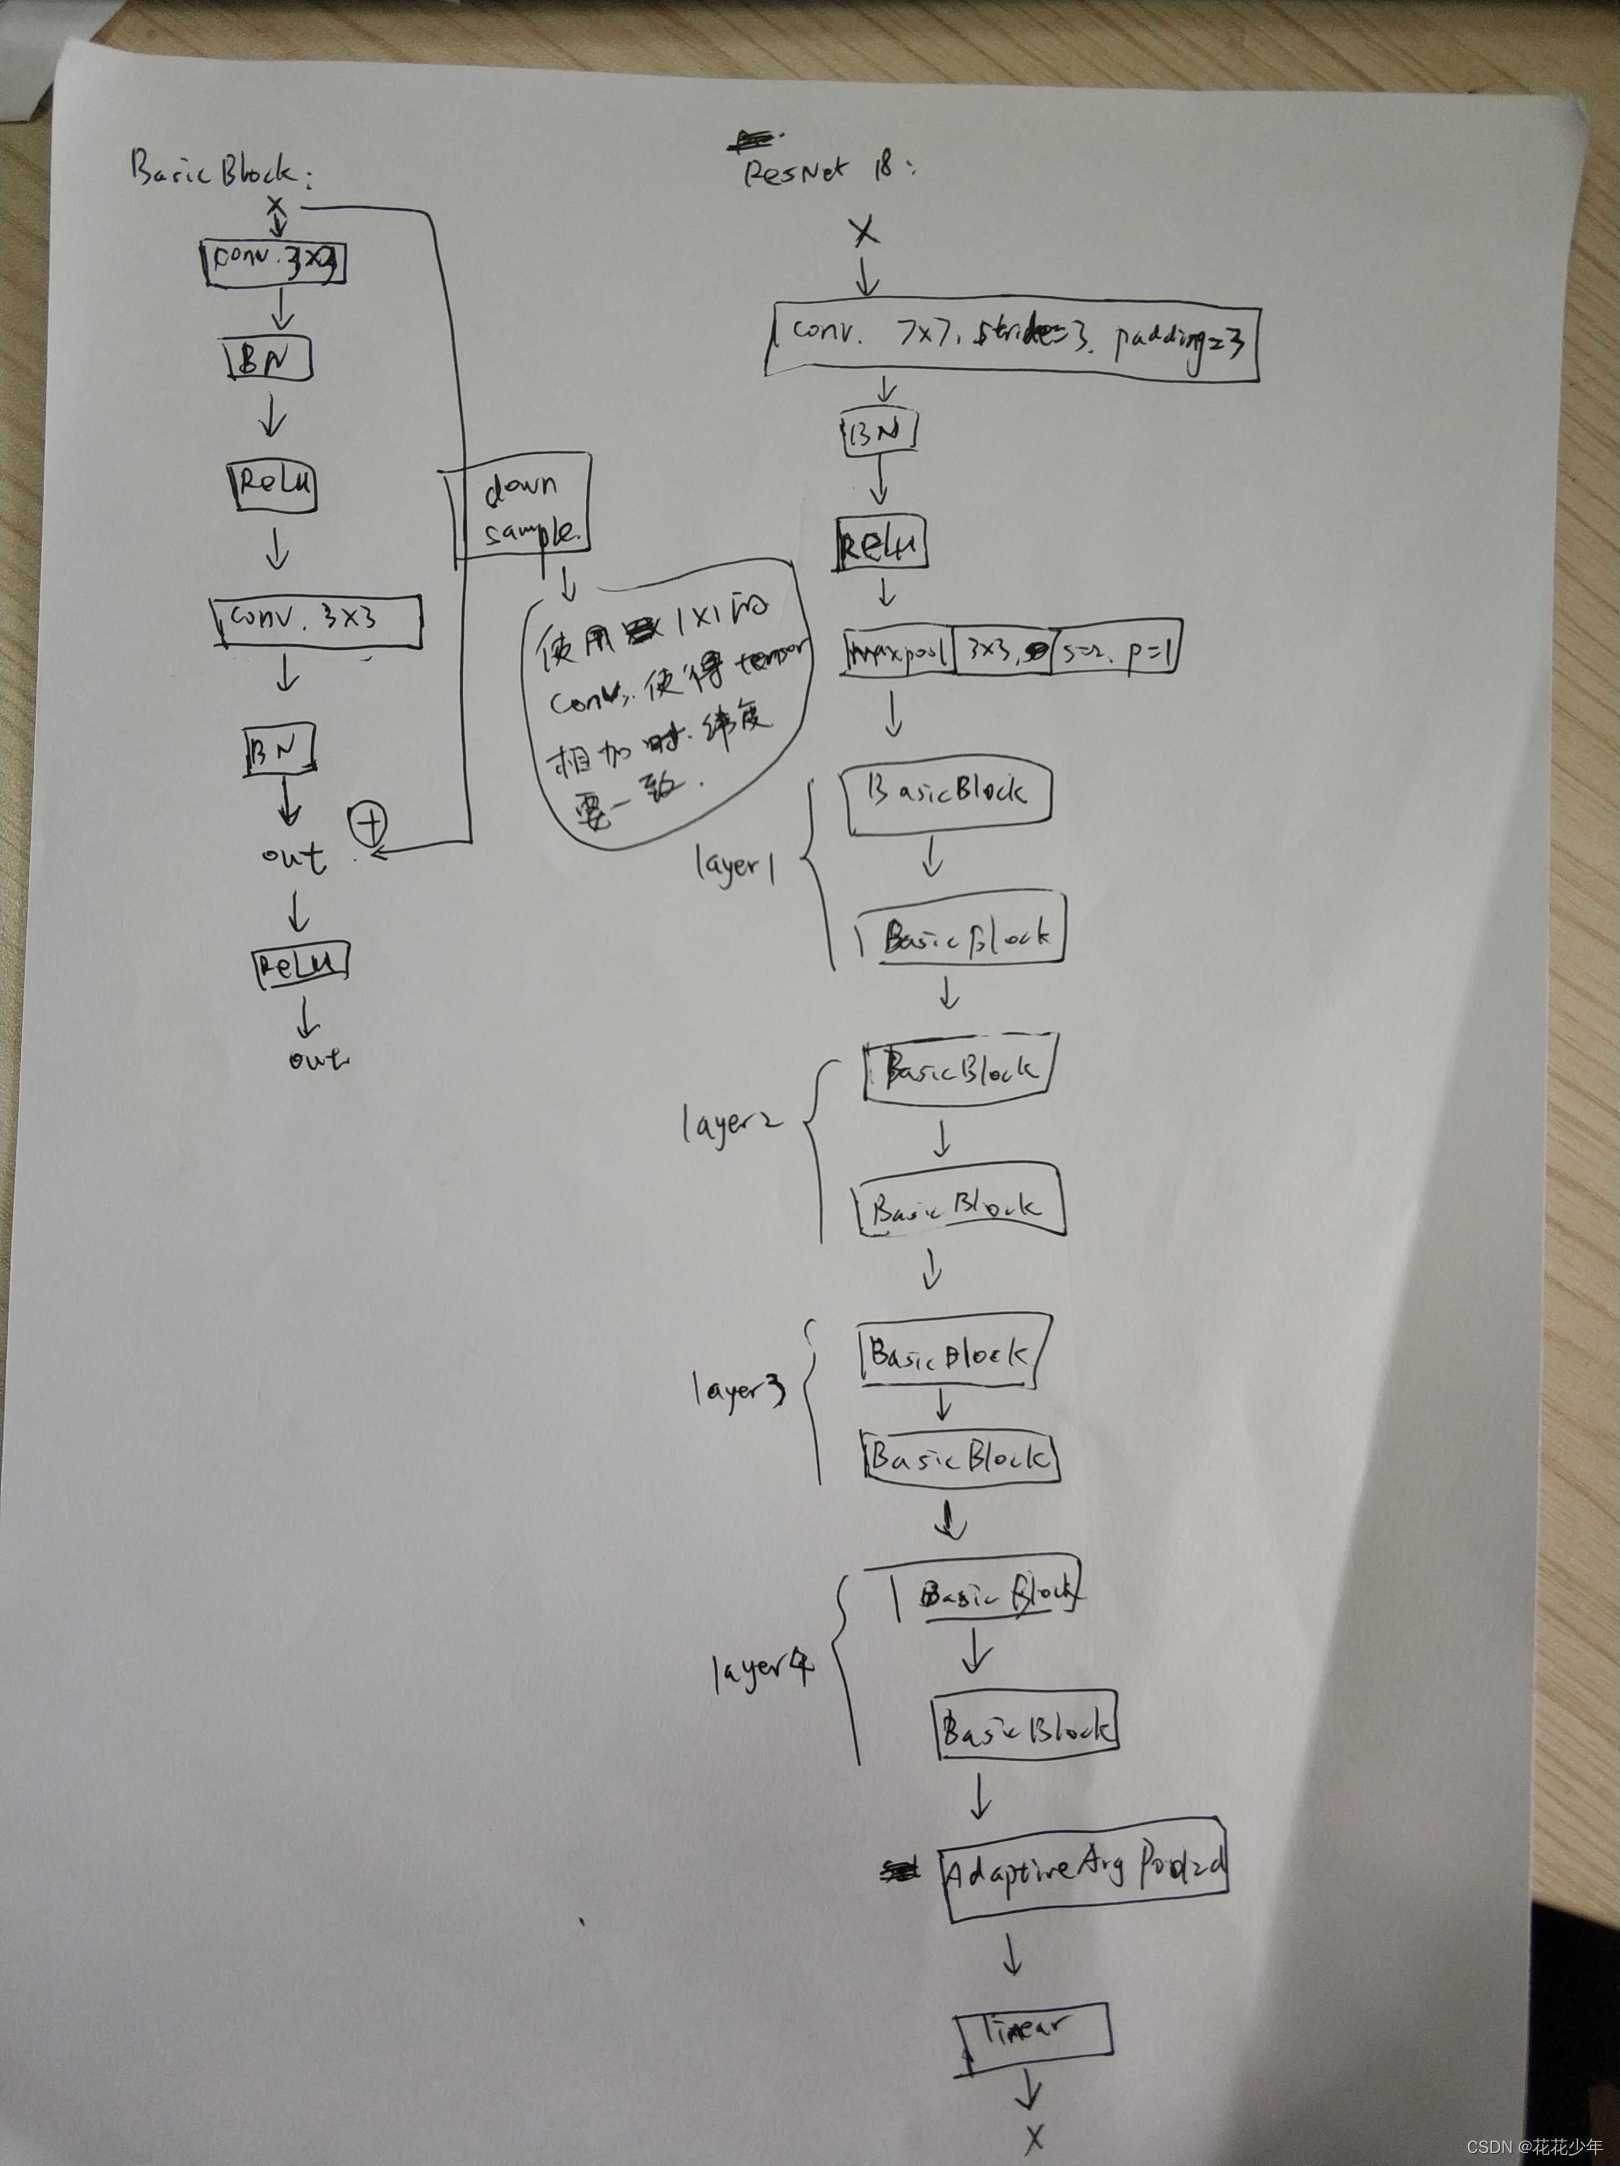 BasicBlock:
X
conv. 3×3
BN
ReLU
conv. 3×3
BN
out
+
ReLU
out
down
sample.
使用 1×1的
conv, 使得tensor
相加时. 纬度
要一致.
ResNet 18:
X
conv. 7×7, stride=3. padding=3
BN
ReLU
maxpool 3×3, s=2. p=1
layer1
BasicBlock
BasicBlock
layer2
BasicBlock
BasicBlock
layer3
BasicBlock
BasicBlock
layer4
BasicBlock
BasicBlock
AdaptiveAvgPool2d
linear
X
CSDN @花花少年